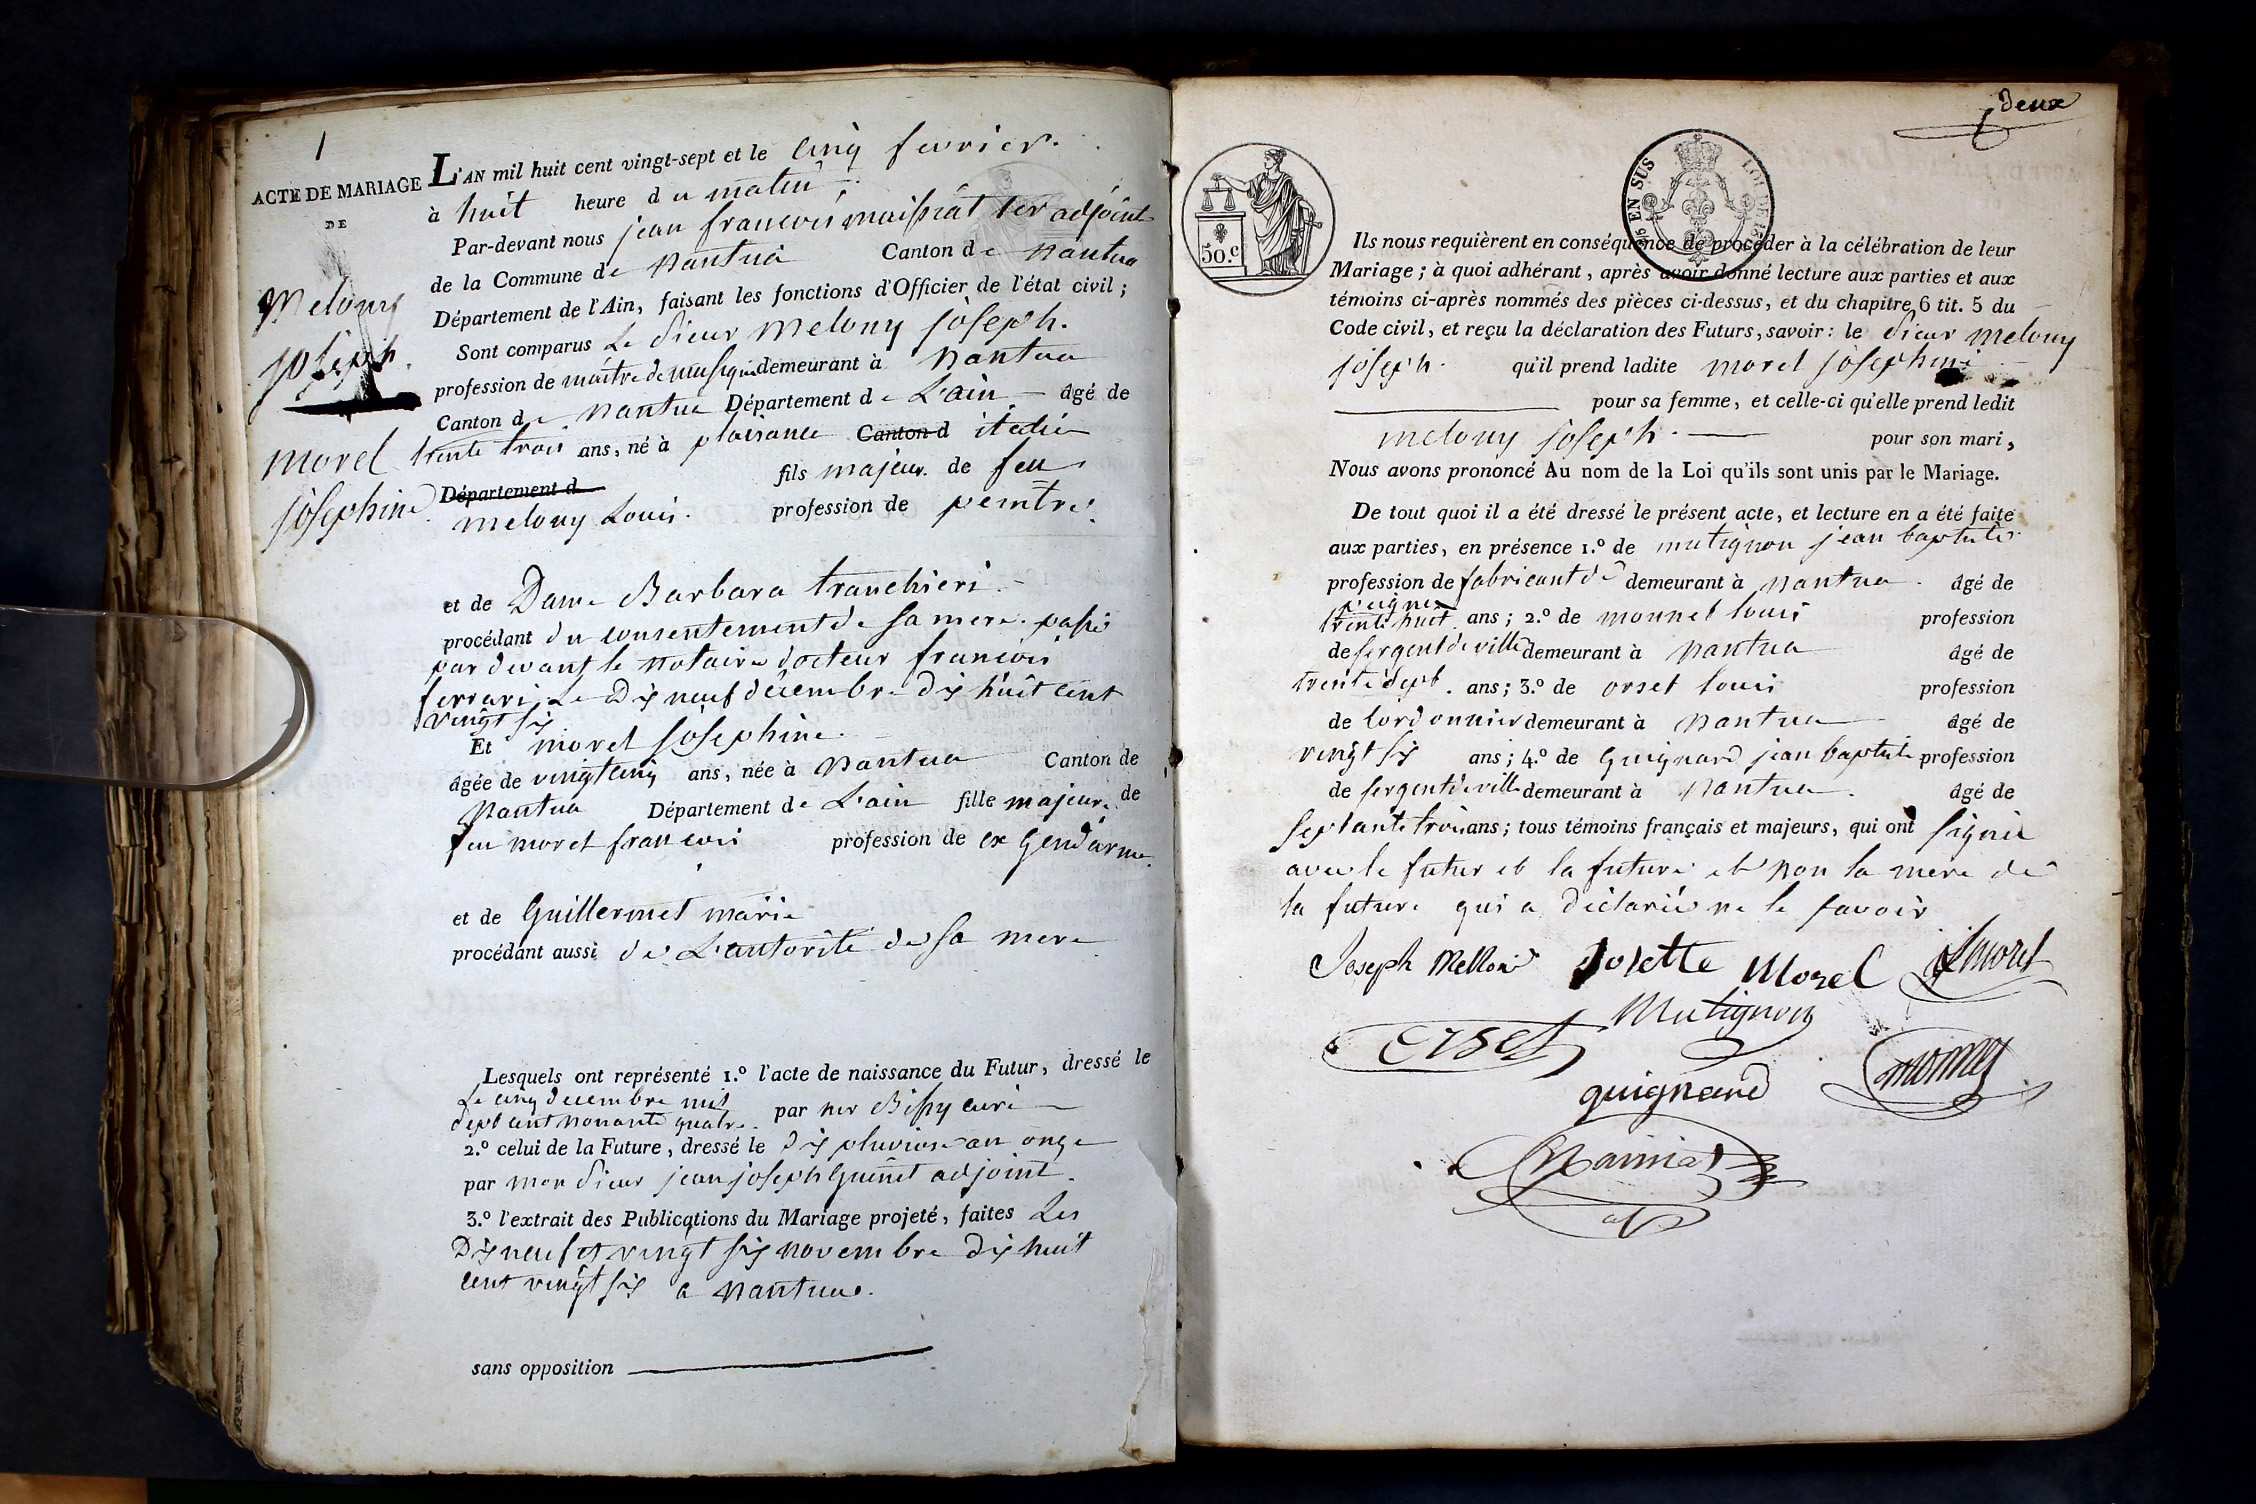 1
ACTE DE MARIAGE
DE
Melouy
joseph.
morel
josephine.
L'AN mil huit cent vingt-sept et le cinq fevrier.
à huit heure du matin
Par-devant nous jean francois maissiat 1er adjoint
de la Commune de Nantua Canton de Nantua
Département de l'Ain, faisant les fonctions d'Officier de l'état civil ;
Sont comparus Le Sieur Melouy joseph.
profession de maitre de musique demeurant à Nantua
Canton de Nantua Département de L'ain âgé de
trente trois ans, né à plaisance Canton d italie
Département d fils majeur de feu
melouy Louis. profession de peintre.
et de Dame Barbara tranchieri.
procédant du consentement de sa mere. passé
par devant le notaire docteur francois
ferrari Le Dix neuf décembre dix huit cent
vingt six
Et morel josephine.
âgée de vingt cinq ans, née à Nantua Canton de
Nantua Département de L'ain fille majeure de
feu morel francois profession de ex Gendarme.
et de Guillermet marie
procédant aussi de L'autorité de sa mere
Lesquels ont représenté 1.º l'acte de naissance du Futur, dressé le
Le cinq decembre mil
sept cent nonante quatre. par mr Bissy curé
2.º celui de la Future, dressé le dix pluviose an onze
par mon sieur jean joseph Guinet adjoint.
3.º l'extrait des Publications du Mariage projeté, faites Les
Dix neuf et vingt six novembre dix huit
cent vingt six a Nantua.
sans opposition
deux
50.c
EN SUS
Ils nous requièrent en conséquence de procéder à la célébration de leur
Mariage ; à quoi adhérant, après avoir donné lecture aux parties et aux
témoins ci-après nommés des pièces ci-dessus, et du chapitre 6 tit. 5 du
Code civil, et reçu la déclaration des Futurs, savoir : le Sieur Melouy
joseph. qu'il prend ladite morel josephine
pour sa femme, et celle-ci qu'elle prend ledit
melouy joseph. pour son mari,
Nous avons prononcé Au nom de la Loi qu'ils sont unis par le Mariage.
De tout quoi il a été dressé le présent acte, et lecture en a été faite
aux parties, en présence 1.º de mutignon jean baptiste
profession de fabricant de demeurant à Nantua. âgé de
peignes
trente huit ans ; 2.º de monnet louis profession
de sergent de ville demeurant à Nantua âgé de
trente sept. ans ; 3.º de orset louis profession
de cordonnier demeurant à Nantua âgé de
vingt six ans ; 4.º de Guignard jean baptiste profession
de sergent de ville demeurant à Nantua. âgé de
septante trois ans ; tous témoins français et majeurs, qui ont signé
avec le futur et la future et non la mere de
la future qui a déclaré ne le savoir
Joseph Melloni Josette Morel morel
orset Mutignon
guignard monnet
Maissiat